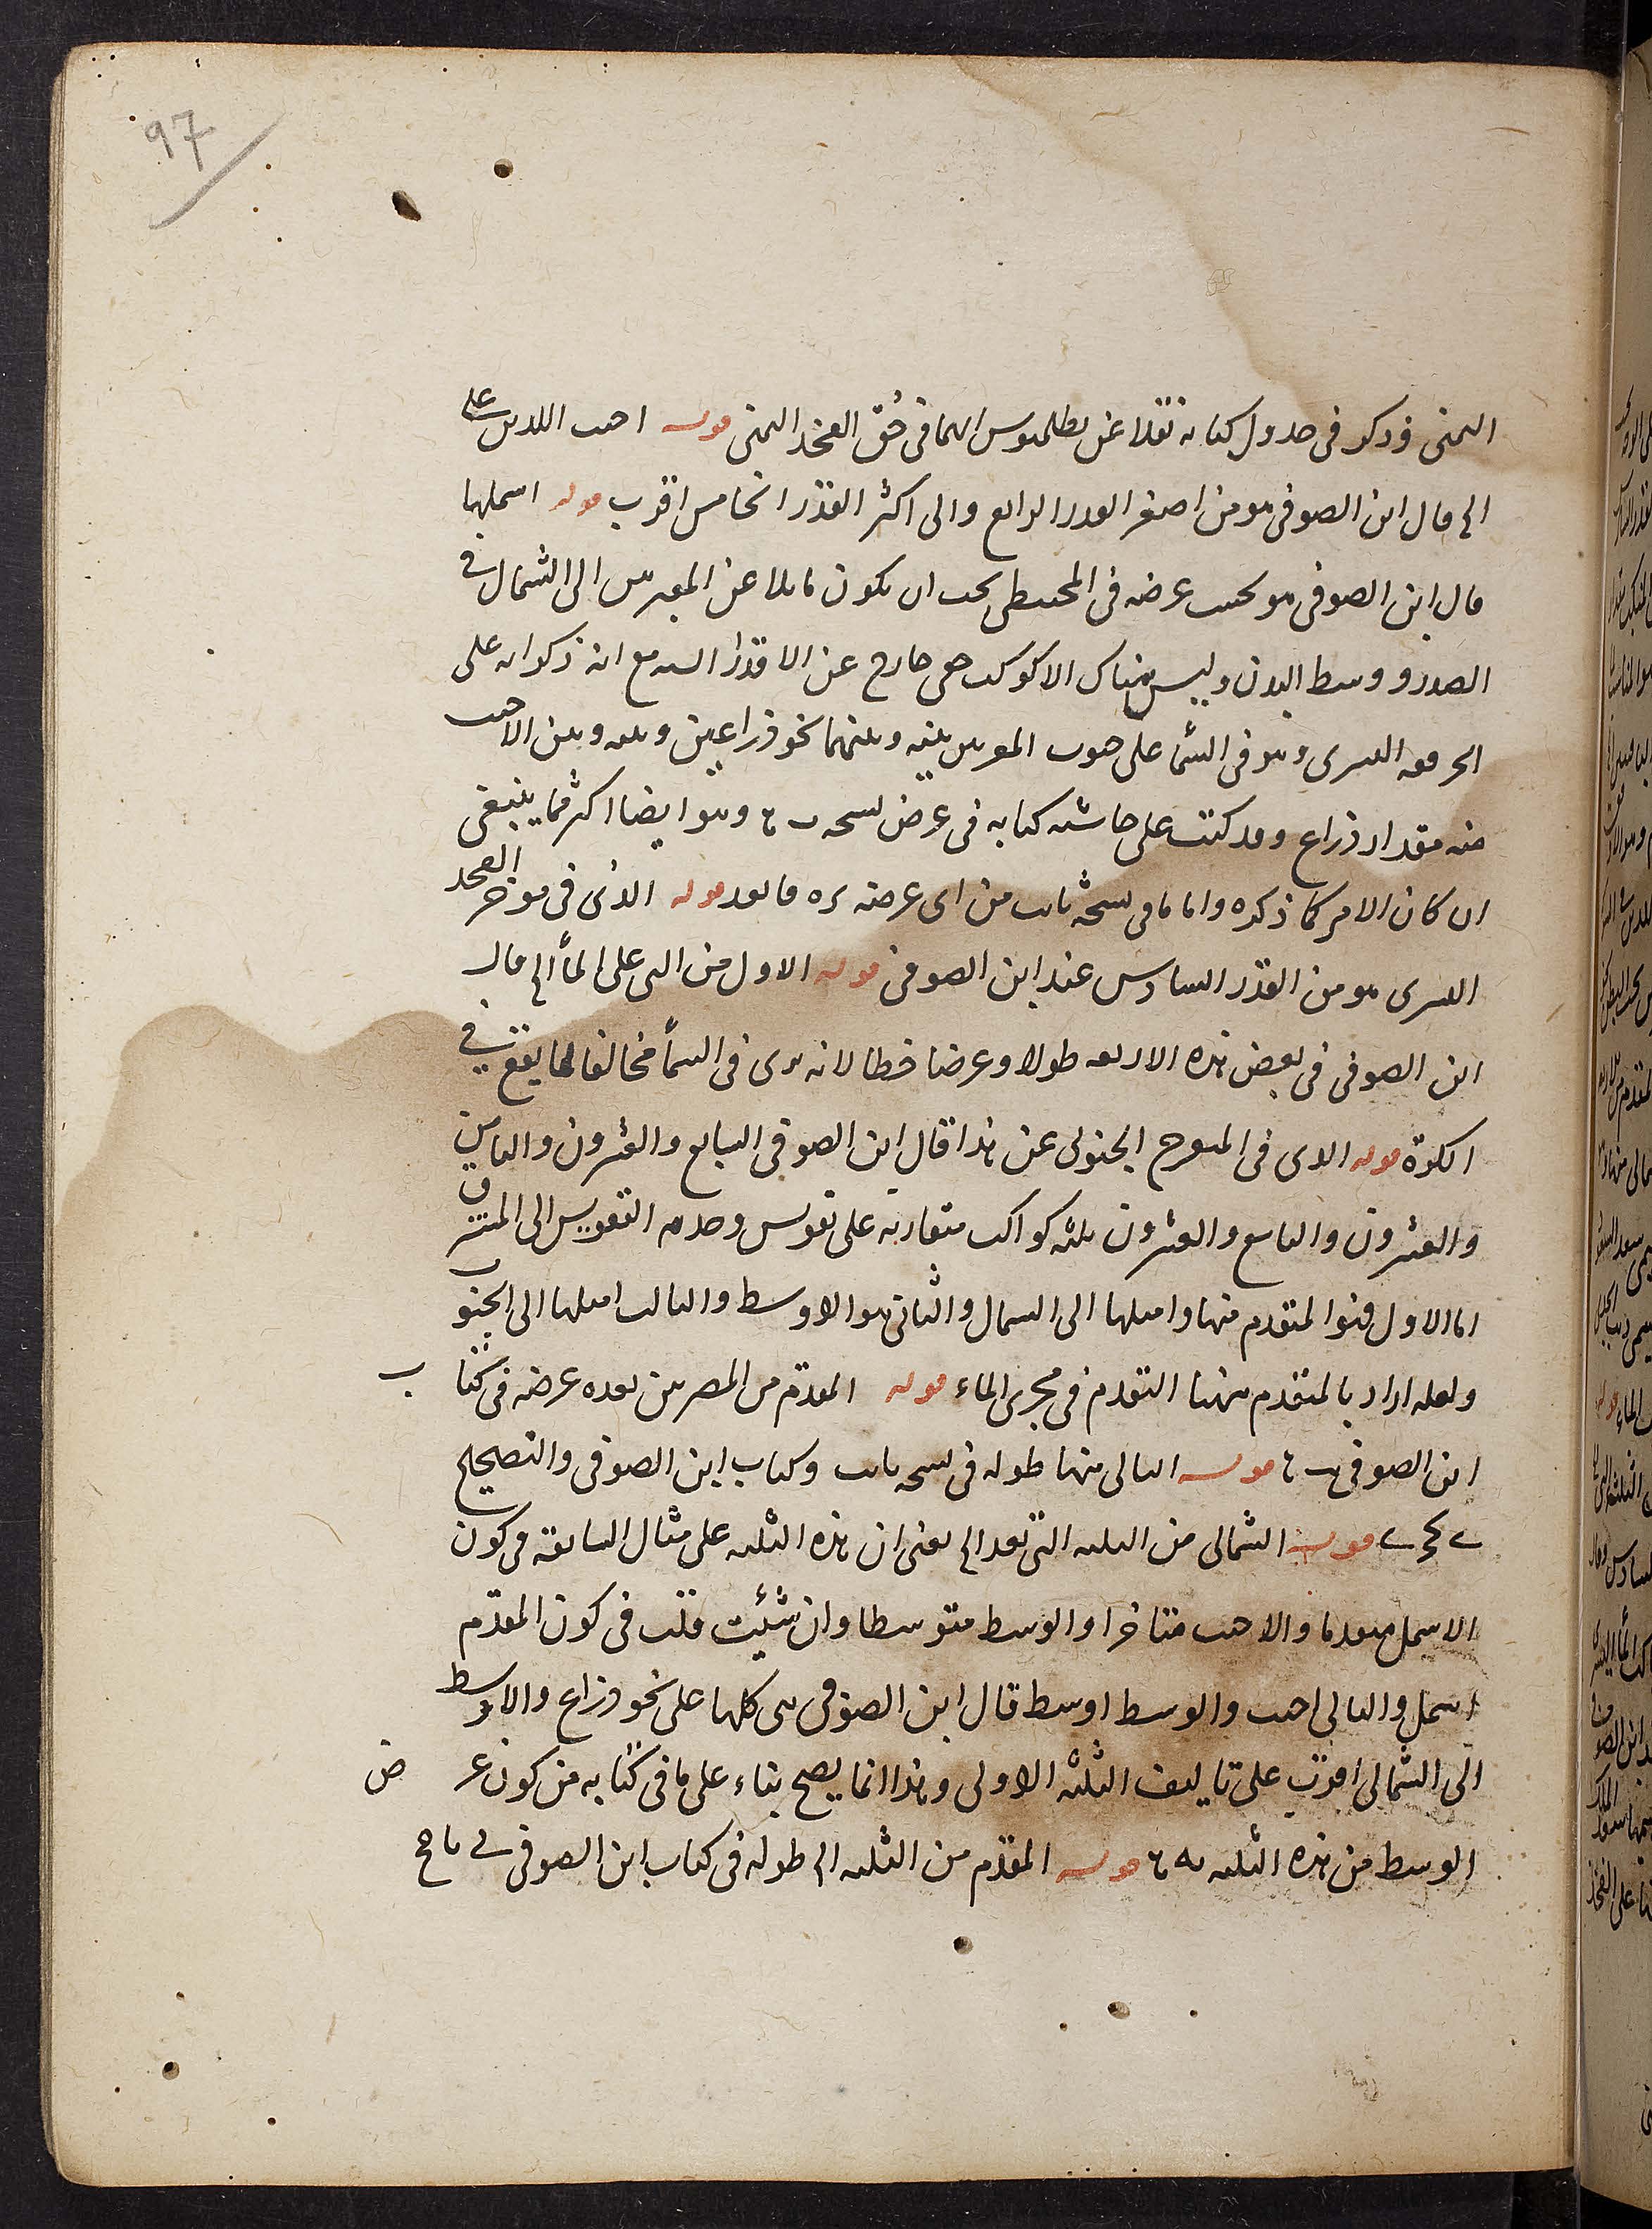 97
اليمنى وذكر فى جدول كتابه نقلا عن بطلميوس انهما فى حُق الفخذ اليمنى قوله اجنب اللذين على
الى قال ابن الصوفى هو من اصغر القدر الرابع والى اكثر القدر الخامس اقرب قوله اشملهما
قال ابن الصوفى هو بحسب عرضه فى المجسطى يجب ان يكون مايلا عن المقدمين الى الشمال فى
الصدر ووسط البدن وليس هناك الا كوكب خفى خارج عن الاقدار السته مع انه ذكر انه على
الحرقفه اليسرى وهو فى السّما على جنوب بينه وبينهما نحو ذراعين وبينه وبين الاجنب
منه مقدار ذراع وقد كتبت على حاشيه كتابه فى عرض نسخه وهو ايضا اكثر مما ينبغى
ان كان الامر كما ذكره واما ما فى نسخة ثابت من اى عرضه فابعد قوله الذى فى موخر الفخذ
اليسرى هو من القدر السادس عند ابن الصوفى قوله الاول من التى على المأ الى قال
ابن الصوفى فى بعض هذه الاربعه طولا وعرضا خطا لانه يرى فى السمأ مخالفا لما يقع فى
الكرة قوله الذى فى المنعرج الجنوبى عن هذا قال ابن الصوفى السابع والعشرون والثامن
والعشرون والتاسع والعشرون ثلثه كواكب متقاربه على تقويس وحدبه التقويس الى المشرق
اما الاول فهو المتقدم منها واميلها الى الشمال والثانى هو الاوسط والثالث اميلها الى الجنوب
ولعله اراد بالمتقدم ههنا التقدم فى مجرى الماء قوله المقدم من المضربين بعده عرضه فى كتاب
ابن الصوفى قوله التالى منها طوله فى نسخه ثابت وكتاب ابن الصوفى والتصحيح
قوله الشمالى من الثلثه التى بعد الى يعنى ان هذه الثلثه على مثال السابقه فى كون
الاشمل متقدما والاجنب متاخرا والوسط متوسطا وان شئيت قلت فى كون المقدم
اشمل والتالى اجنب والوسط اوسط قال ابن الصوفى هى كلها على نحو ذراع والاوسط
الى الشمالى اقرب على تاليف الثلثه الاولى وهذا انما يصح بناء على ما فى كتابه من كون عرض
الوسط من هذه الثلثه قوله المقدم من الثلثه الى طوله فى كتاب ابن الصوفى